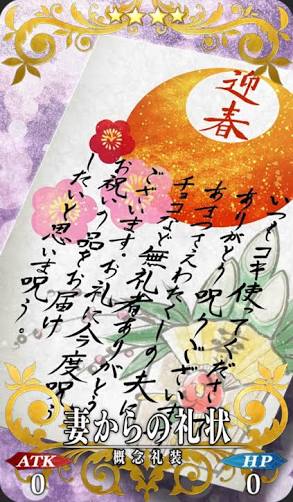 迎春
いつもコキ使ってくださり
ありがとう呪うございいた
あまつさえわたくしの夫に
チョコなど
無礼者ありがとう
ございます。お礼に今度呪
お祝いの品をお届け
したいと思いま呪う。
妻からの礼状
概念礼装
ATK
0
HP
0